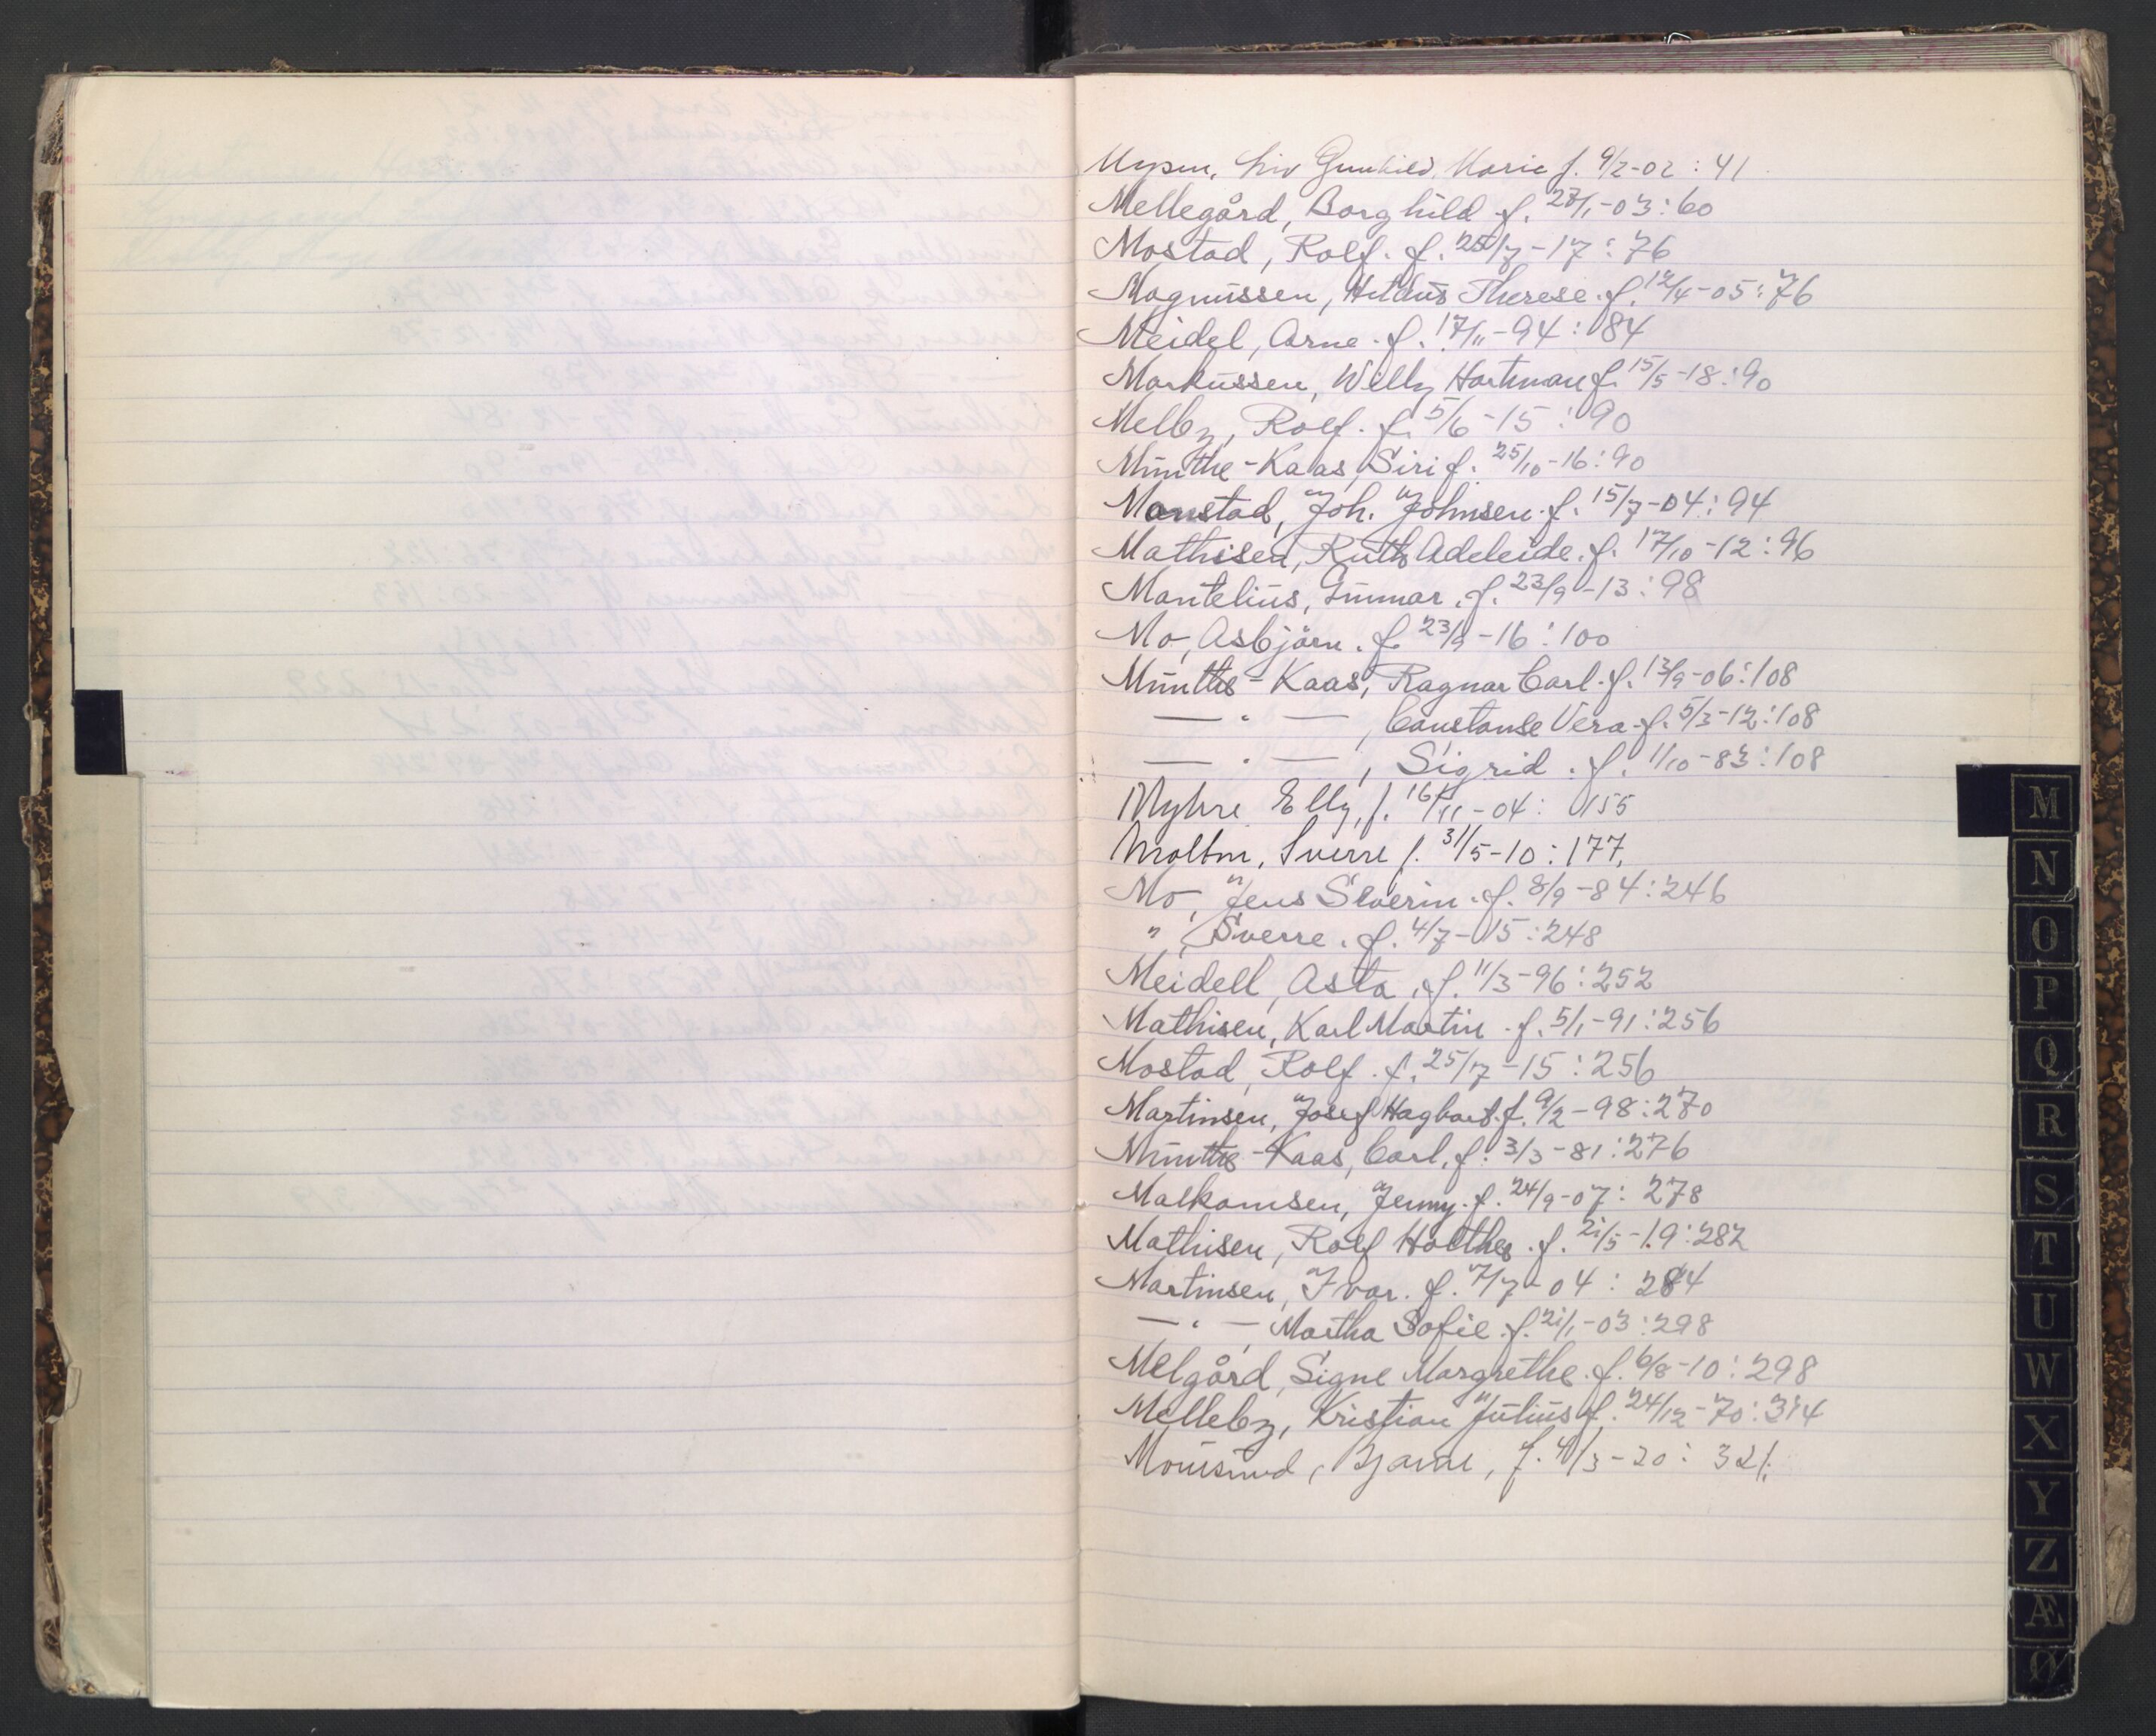 Mysen, Liv Gunhild Marie f. 9/2-02 : 41
Mellegård, Borghild f. 28/1-03 : 60
Mostad, Rolf. f. 25/7-17 : 76
Magnussen, Therese. f. 12/4-05 : 76
Meidel, Arne. f. 17/11-94 : 84
Markussen, Willy Hartman f. 15/5-18 : 90
Melby, Rolf. f. 5/6-15 : 90
Münthe-Kaas, Siri f. 25/10-16 : 90
Monstad, Joh. Johnsen. f. 15/7-04 : 94
Mathisen, Ruth Adeleide. f. 17/10-12 : 96
Mantelius, Gunnar. f. 23/9-13 : 98
Mo, Asbjörn. f. 23/9-16 : 100
Münthe-Kaas, Ragnar Carl. f. 13/9-06 : 108
— " — , Constanse Vera. f. 5/3-12 : 108
— " — , Sigrid. f. 1/10-83 : 108
Myhre Elly, f. 16/11-04 : 155
Sverre f. 31/5-10 : 177,
Mo, Jens Severin. f. 8/9-84 : 246
" , Sverre. f. 4/7-15 : 248
Meidell, Asta. f. 11/3-96 : 252
Mathisen, Karl Martin. f. 5/1-91 : 256
Mostad, Rolf. f. 25/7-15 : 256
Martinsen, Josef Hagbart. f. 9/2-98 : 270
Münthe-Kaas, Carl. f. 3/3-81 : 276
Malkomsen, Jenny. f. 24/9-07 : 278
Mathisen, Rolf Holthe. f. 21/5-19 : 282
Martinsen, Ivar. f. 7/7-04 : 284
— " — , Martha Sofie. f. 21/1-03 : 298
Melgård, Signe Margrethe. f. 6/8-10 : 298
Melleby, Kristian Julius f. 24/12-70 : 314
Bjarne, f. /3-20 : 321
M
N
O
P
Q
R
S
T
U
W
X
Y
Z
Æ
Ø